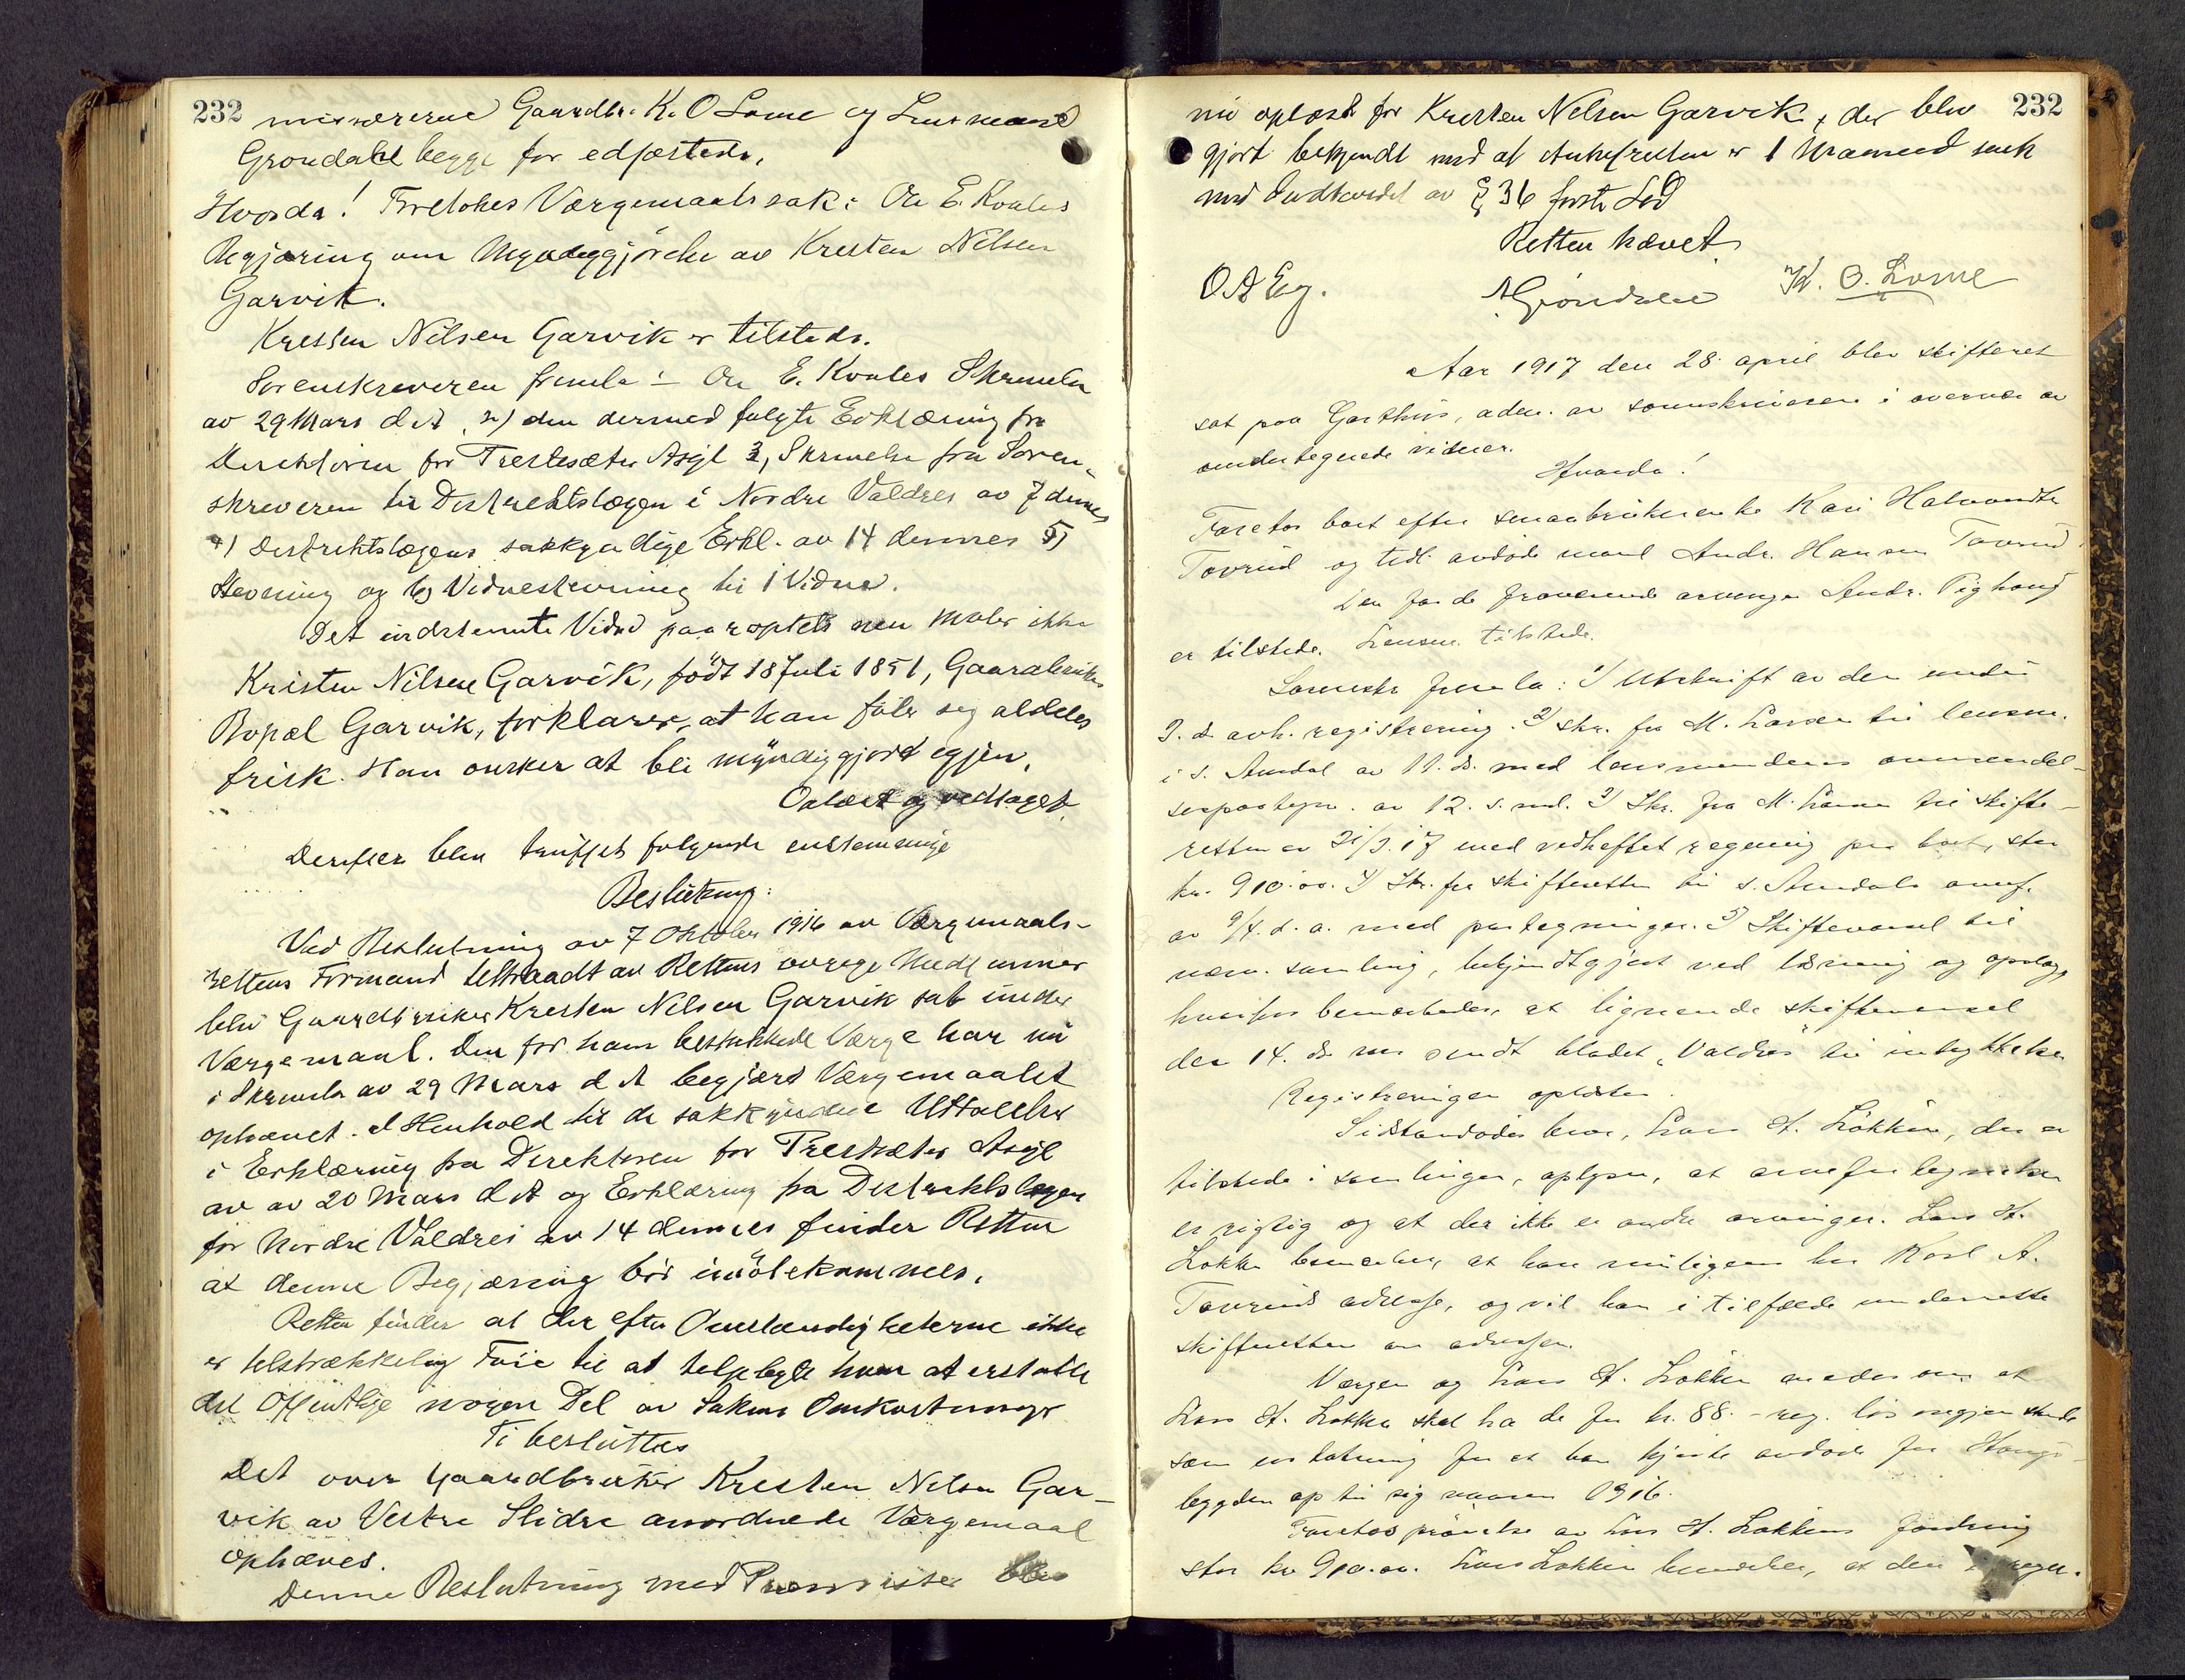 232
missærerne Gaardbr. K. O Lome og Lensmand
Grøndahl begge før edfæstede.
Hvorda! Foretokes Værgemaalssak: Ole E. Kvales
Begjæring om Myndiggjørelse av Kristen Nilsen
Garvik.
Kristen Nilsen Garvik er tilstede.
Sorenskriveren fremla: Ole E. Kvales Skrivelse
av 29 Mars d A, 2) den dermed fulgte Erklæring fra
Direktøren for Presteseter Asyl 3, Skrivelse fra Soren-
skriveren til Distriktslægen i Nordre Valdres av 7 dennes
4) Distriktslægens sakkyndige Erkl. av 14 dennes 5)
Stevning og 6) Vidnestevning til 1 Vidne.
Det indstevnte Vidne paaroptes men møter ikke
Kristen Nilsen Garvik, født 18 Juli 1851, Gaardbruker
Bopæl Garvik, forklarer, at han føler seg aldeles
frisk. Han ønsker at bli myndiggjord igjen.
Oplæst og vedtaget.
Derefter blev truffet følgende enstemmige
Beslutning:
Ved Beslutning av 7 Oktober 1916 av Værgemaals-
rettens Formand tiltraadt av Rettens øvrige Medlemmer
blev Gaardbruker Kristen Nilsen Garvik sat under
Værgemaal. Den for ham beskikkede Værge har nu
i Skrivelse av 29 Mars d A begjært Værgemaalet
ophævet. I Henhold til de sakkyndige Uttalelser
i Erklæring fra Direktøren for Presteseter Asyl
av av 20 Mars d A og Erklæring fra Distriktslægen
for Nordre Valdres av 14 dennes finder Retten
at denne Begjæring bør imøtekommes.
Retten finder at der efter Omstændigheterne ikke
er tilstrækkelig Føie til at tilpligte ham at erstatte
det Offentlige nogen Del av Sakens Omkostninger
Ti besluttes
Det over Gaardbruker Kristen Nilsen Gar-
vik av Vestre Slidre anordnede Værgemaal
ophæves.
Denne Beslutning med Præmisser blev
232
nu oplæst for Kristen Nilsen Garvik, der blev
gjort bekjendt med at Ankefristen er 1 Maaned
med av § 36 første Led
Retten hævet
O A Eng. AGrøndahl K. O. Lome
Aar 1917 den 28 april blev skifteret
sat paa Garthus, adm. av sorenskriveren i overvær av
undertegnede vidner.
Hvorda!
Foretos boet efter smaabrukerenke Kari Halvorsdtr
Tovrud og tidl. avdøde mand Andr. Hansen Tovrud.
Den for de fraværende arvinger Andr. Pighaug
er tilstede. Lensm. tilstede.
Sorenskr. fremla: 1) Utskrift av den under
3. ds avh. registrering. 2) skr. fra M. Larsen til lensm.
i s. Aurdal av 11. ds. med lensmandens anmeldel-
sespaategn. av 12. s. md. 3) Skr. fra M. Larsen til skifte-
retten av 21/3.17 med vedheftet regning paa boet, stor
kr. 910.00. 4) Skr. fra skifteretten til s. Aurdals
av 9/4. d. a. med paategninger. 5) Skiftevarsel til
nærv. samling, bekjendtgjort ved læsning og opslag,
hvorfor bemerkedes, at lignende skiftevarsel
den 14. ds var sendt bladet "Valdres" til indrykkelse
Registreringen oplæstes.
Sidstavdødes bror, Lars H. Løkken, der er
tilstede i samlingen, oplyser, at
er rigtig og at der ikke er andre arvinger. Lars H.
Løkken bemerker, at han muligens har Karl A.
Tovruds adresse, og vil han i tilfælde underrette
skifteretten om adressen.
Værgen og Lars H. Løkken enedes om at
Lars H. Løkken skal ha de for kr. 88.- reg. løsøregjenstande
som erstatning for at han kjørte avdøde fra Haugs-
bygden op til sig vaaren 1916.
Foretos prøvelse av Lars H. Løkkens fordring
stor kr 910.00. Lars Løkken bemerker, at den